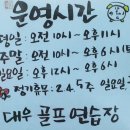 운영시간
평일: 오전 10시~오후 11시
주말: 오전 10시~오후 6시
일요일: 오후 2시~오후 6시
정기휴무: 2.4.5주 일요일
대우골프연습장